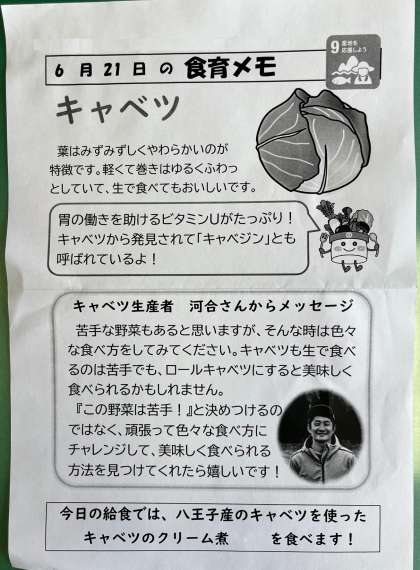 9 産地を
応援しよう
6月21日の食育メモ
キャベツ
葉はみずみずしくやわらかいのが
特徴です。軽くて巻きはゆるくふわっ
としていて、生で食べてもおいしいです。
胃の働きを助けるビタミンUがたっぷり!
キャベツから発見されて「キャベジン」とも
呼ばれているよ!
キャベツ生産者 河合さんからメッセージ
苦手な野菜もあると思いますが、そんな時は色々
な食べ方をしてみてください。キャベツも生で食べ
るのは苦手でも、ロールキャベツにすると美味しく
食べられるかもしれません。
『この野菜は苦手!』と決めつけるの
ではなく、頑張って色々な食べ方に
チャレンジして、美味しく食べられる
方法を見つけてくれたら嬉しいです!
今日の給食では、八王子産のキャベツを使った
キャベツのクリーム煮 を食べます!